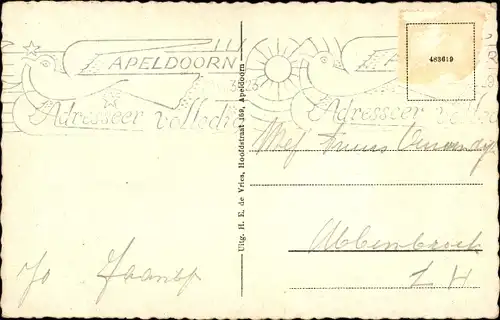 APELDOORN
Adresseer volledig
Adresseer volledig
483619
Uitg. H. E. de Vries, Hoofdstraat 164, Apeldoorn
Mej
Abbenbroek
Z H
Jo